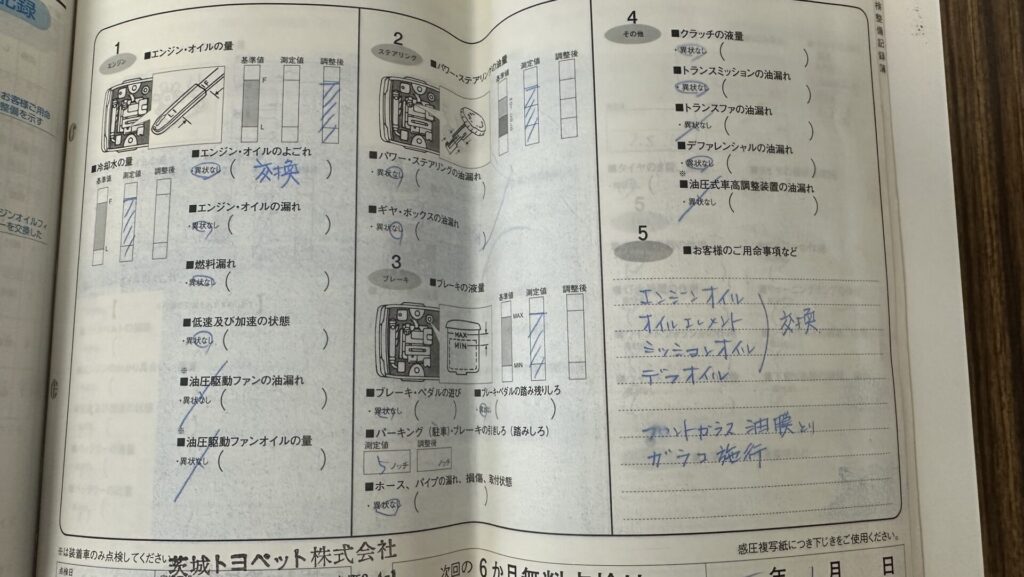 記録
お客様ご用命
整備を示す
ジンオイルフィ
ーを交換した
検整備記録簿
1
エンジン
■エンジン・オイルの量
基準値 測定値 調整後
F
L
■冷却水の量
基準値 測定値 調整後
F
L
■エンジン・オイルのよごれ
・異状なし ( 交換 )
■エンジン・オイルの漏れ
・異状なし ( )
■燃料漏れ
・異状なし ( )
■低速及び加速の状態
・異状なし ( )
※
■油圧駆動ファンの油漏れ
・異状なし ( )
※
■油圧駆動ファンオイルの量
・異状なし ( )
2
ステアリング
■パワー・ステアリングの油量
基準値 測定値 調整後
■パワー・ステアリングの油漏れ
・異状なし ( )
■ギヤ・ボックスの油漏れ
・異状なし ( )
3
ブレーキ
■ブレーキの液量
基準値 測定値 調整後
MAX
MIN
MAX
MIN
■ブレーキ・ペダルの遊び
・異状なし ( )
■ブレーキ・ペダルの踏み残りしろ
( )
■パーキング (駐車)・ブレーキの引きしろ (踏みしろ)
測定値 調整後
5 ノッチ ノッチ
■ホース、パイプの漏れ、損傷、取付状態
・異状なし ( )
4
その他
■クラッチの液量
・異状なし ( )
■トランスミッションの油漏れ
・異状なし ( )
■トランスファの油漏れ
・異状なし ( )
■デファレンシャルの油漏れ
・異状なし ( )
※
■油圧式車高調整装置の油漏れ
・異状なし ( )
5
■お客様のご用命事項など
エンジンオイル
オイルエレメント
ミッションオイル
デフオイル
交換
フロントガラス 油膜とり
ガラコ施行
※は装着車のみ点検してください。
茨城トヨペット株式会社
感圧複写紙につき下じきをご使用ください。
点検日
次回の 6か月無料点検は
年 月 日